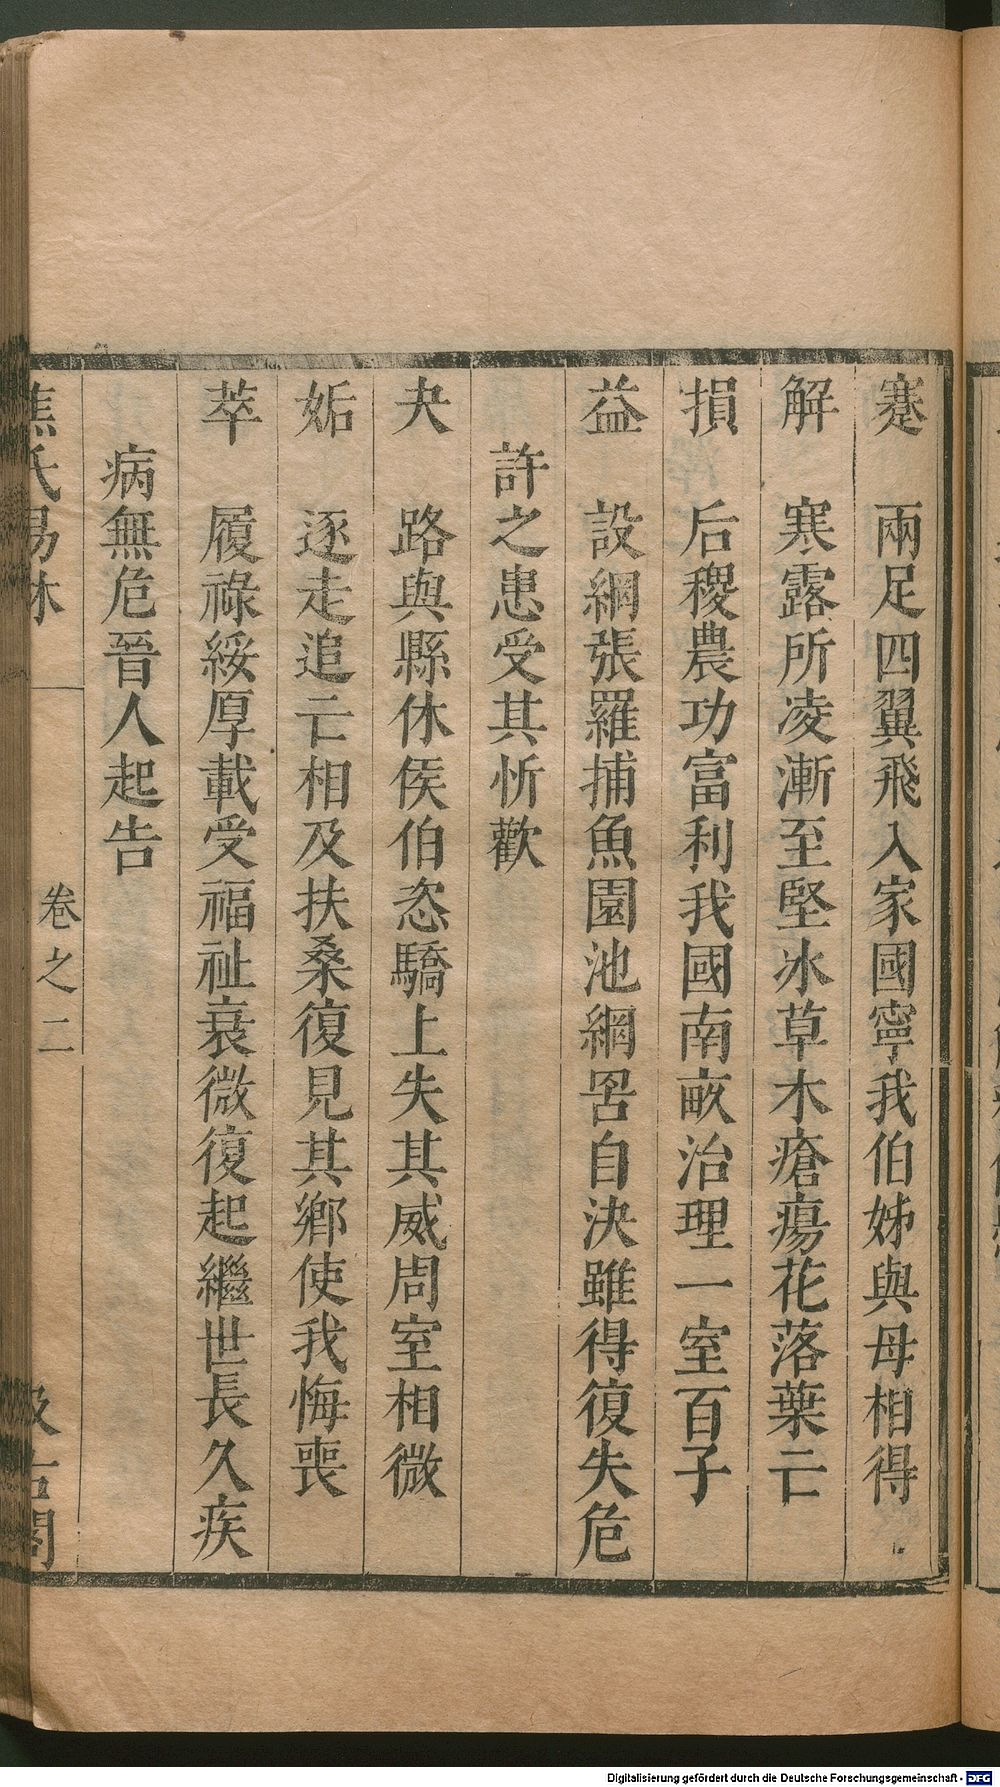 蹇　兩足四翼飛入家國寧我伯姊與母相得
解　寒露所凌漸至堅冰草木瘡瘍花落葉亡
損　后稷農功富利我國南畝治理一室百子
益　設網張羅捕魚園池網罟自決雖得復失危
許之患受其忻歡
夬　路與縣休侯伯恣驕上失其威周室相微
姤　逐走追亡相及扶桑復見其鄉使我悔喪
萃　履祿綏厚載受福祉衰微復起繼世長久疾
病無危晉人起告
焦氏易林　卷之二　汲古閣
Digitalisierung gefördert durch die Deutsche Forschungsgemeinschaft - DFG